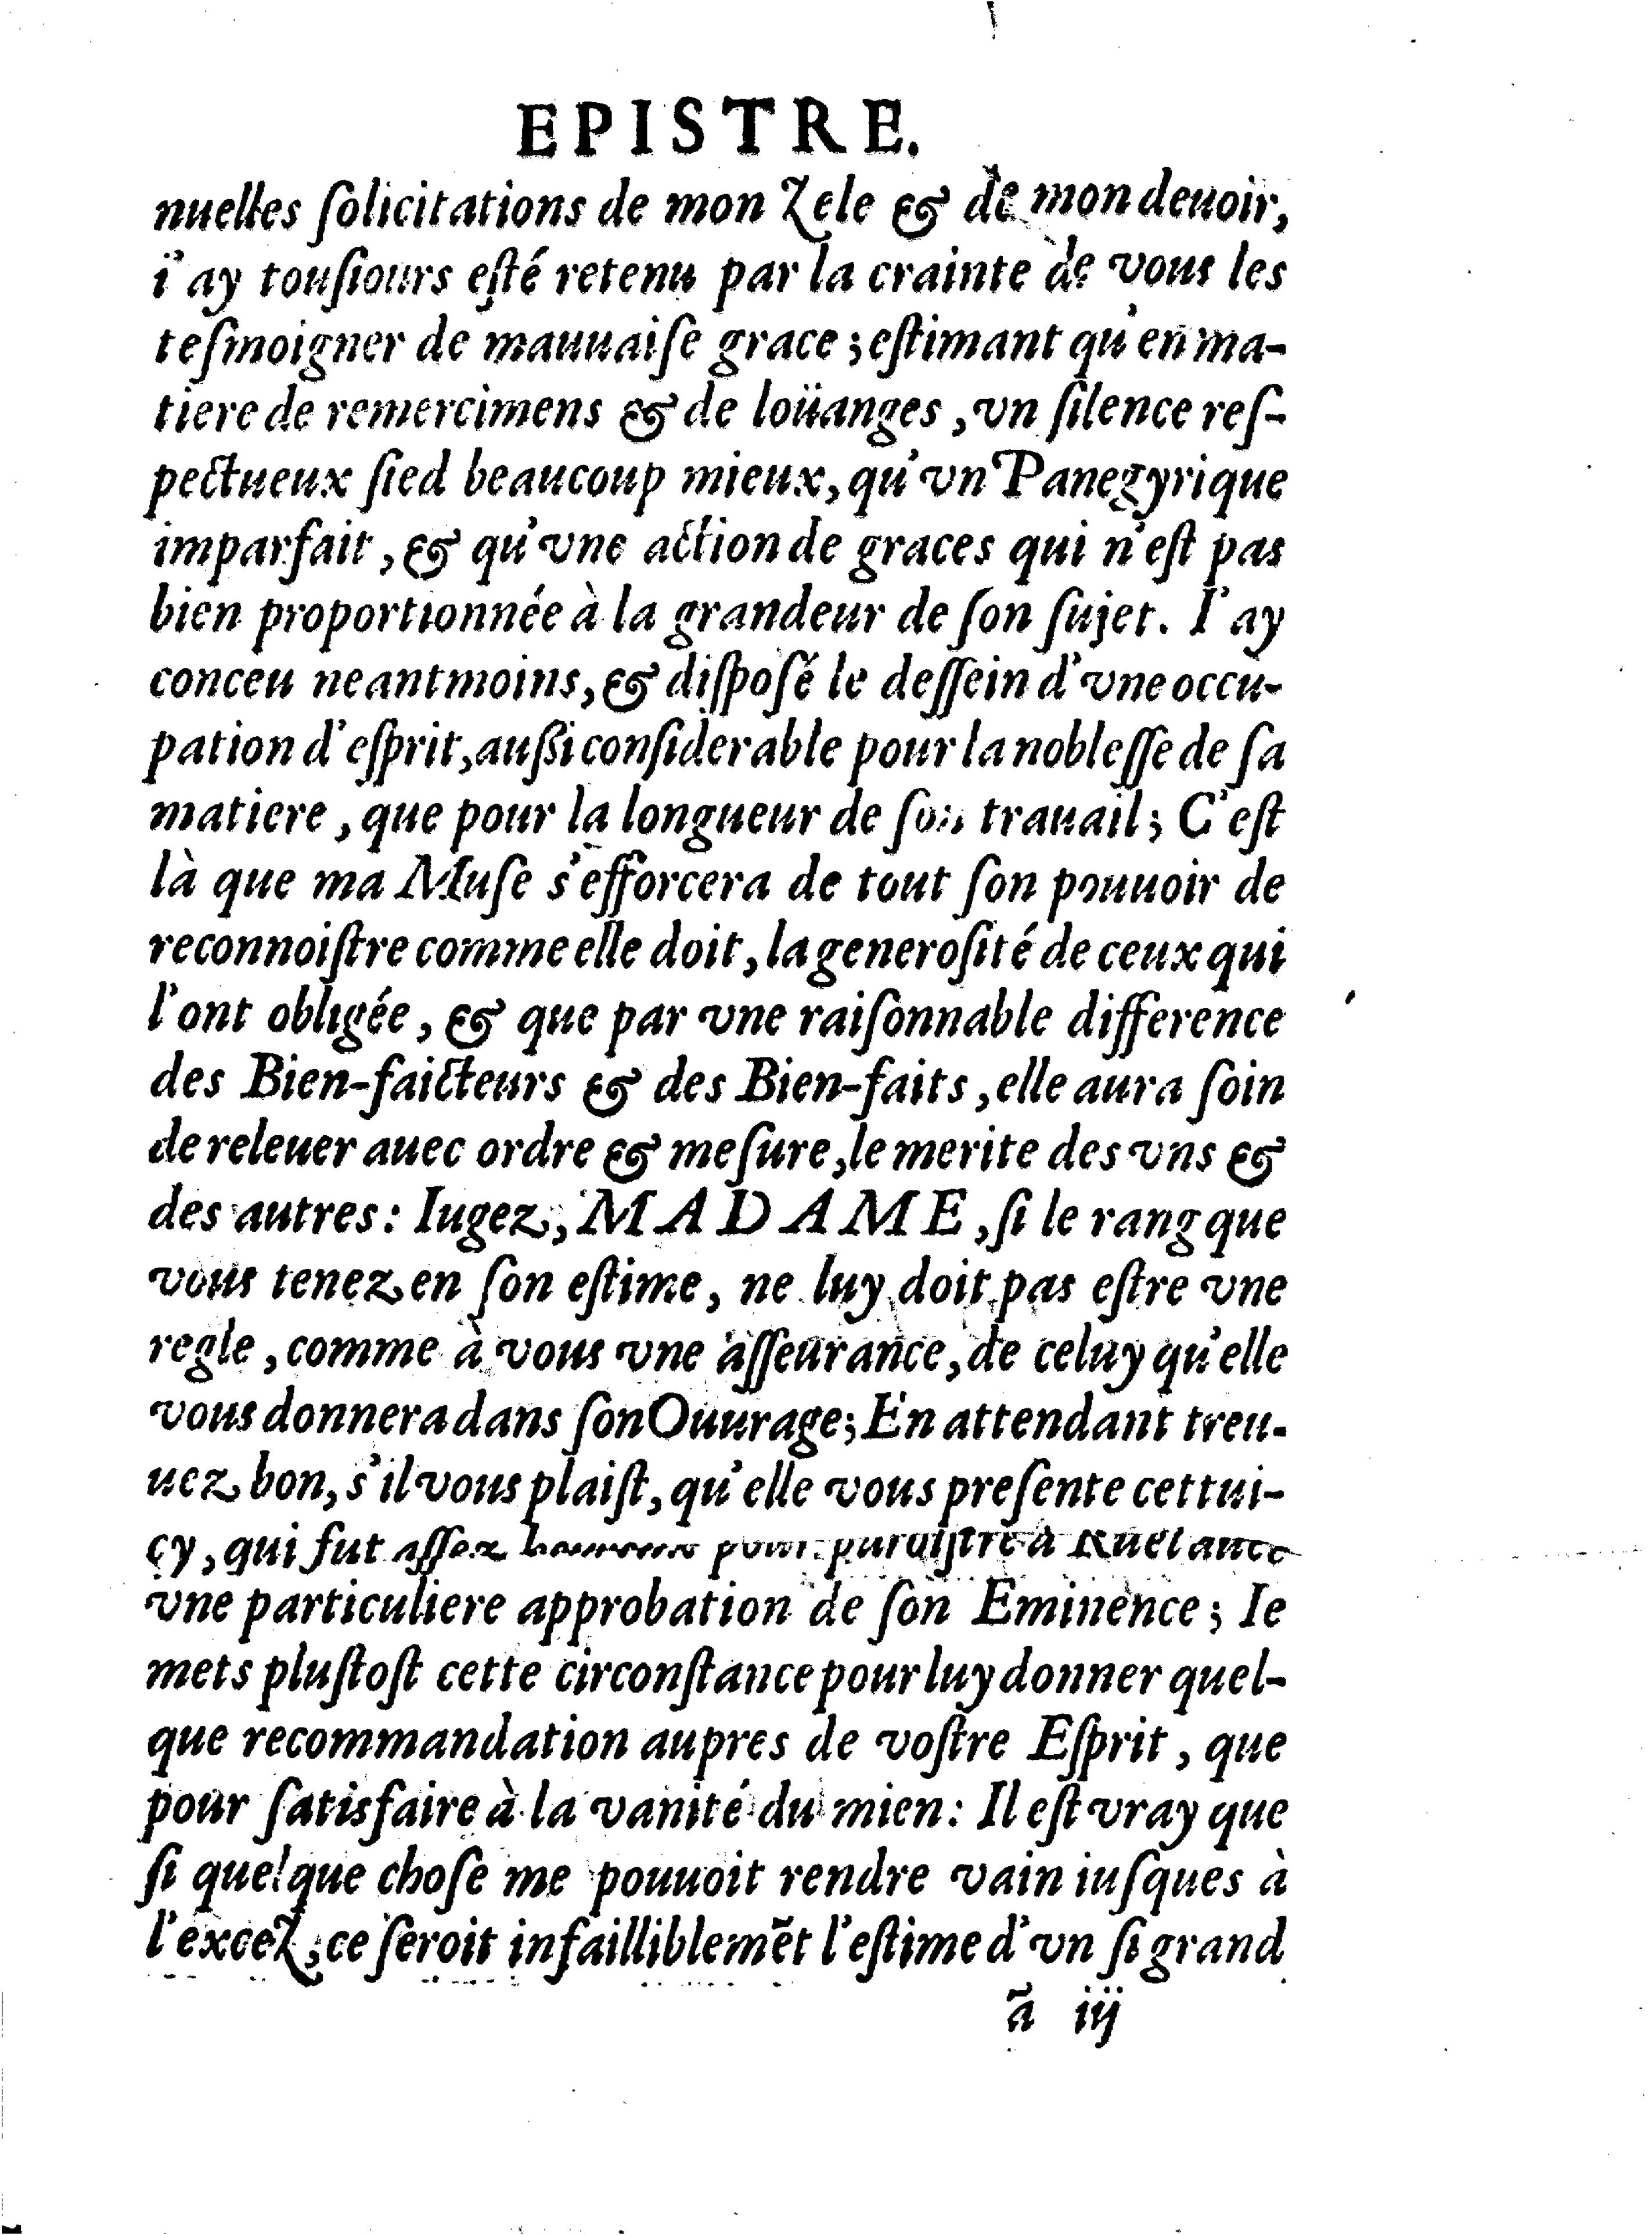 EPISTRE.
nuelles ſolicitations de mon Zele & de mon deuoir,
i'ay touſiours eſté retenu par la crainte de vous les
teſmoigner de mauuaiſe grace ; eſtimant qu'en ma-
tiere de remercimens & de loüanges , vn ſilence reſ-
pectueux ſied beaucoup mieux, qu'vn Panegyrique
imparfait , & qu'vne action de graces qui n'eſt pas
bien proportionnée à la grandeur de ſon ſujet. I'ay
conceu neantmoins, & diſpoſé le deſſein d'vne occu-
pation d'eſprit, auſſi conſiderable pour la nobleſſe de ſa
matiere , que pour la longueur de ſon trauail ; C'eſt
là que ma Muſe s'efforcera de tout ſon pouuoir de
reconnoiſtre comme elle doit, la generoſité de ceux qui
l'ont obligée , & que par vne raiſonnable difference
des Bien-faicteurs & des Bien-faits , elle aura ſoin
de releuer auec ordre & meſure, le merite des vns &
des autres : Iugez, MADAME , ſi le rang que
vous tenez en ſon eſtime, ne luy doit pas eſtre vne
regle , comme à vous vne aſſeurance, de celuy qu'elle
vous donnera dans ſon Ouurage ; En attendant treu-
uez bon, s'il vous plaiſt, qu'elle vous preſente cettui-
cy, qui fut aſſez pour paroiſtre à Ruel auec
vne particuliere approbation de ſon Eminence ; Ie
mets pluſtoſt cette circonſtance pour luy donner quel-
que recommandation aupres de voſtre Eſprit , que
pour ſatisfaire à la vanité du mien : Il eſt vray que
ſi quelque choſe me pouuoit rendre vain iuſques à
l'exceZ, ce ſeroit infailliblemẽt l'eſtime d'vn ſi grand
ã iij